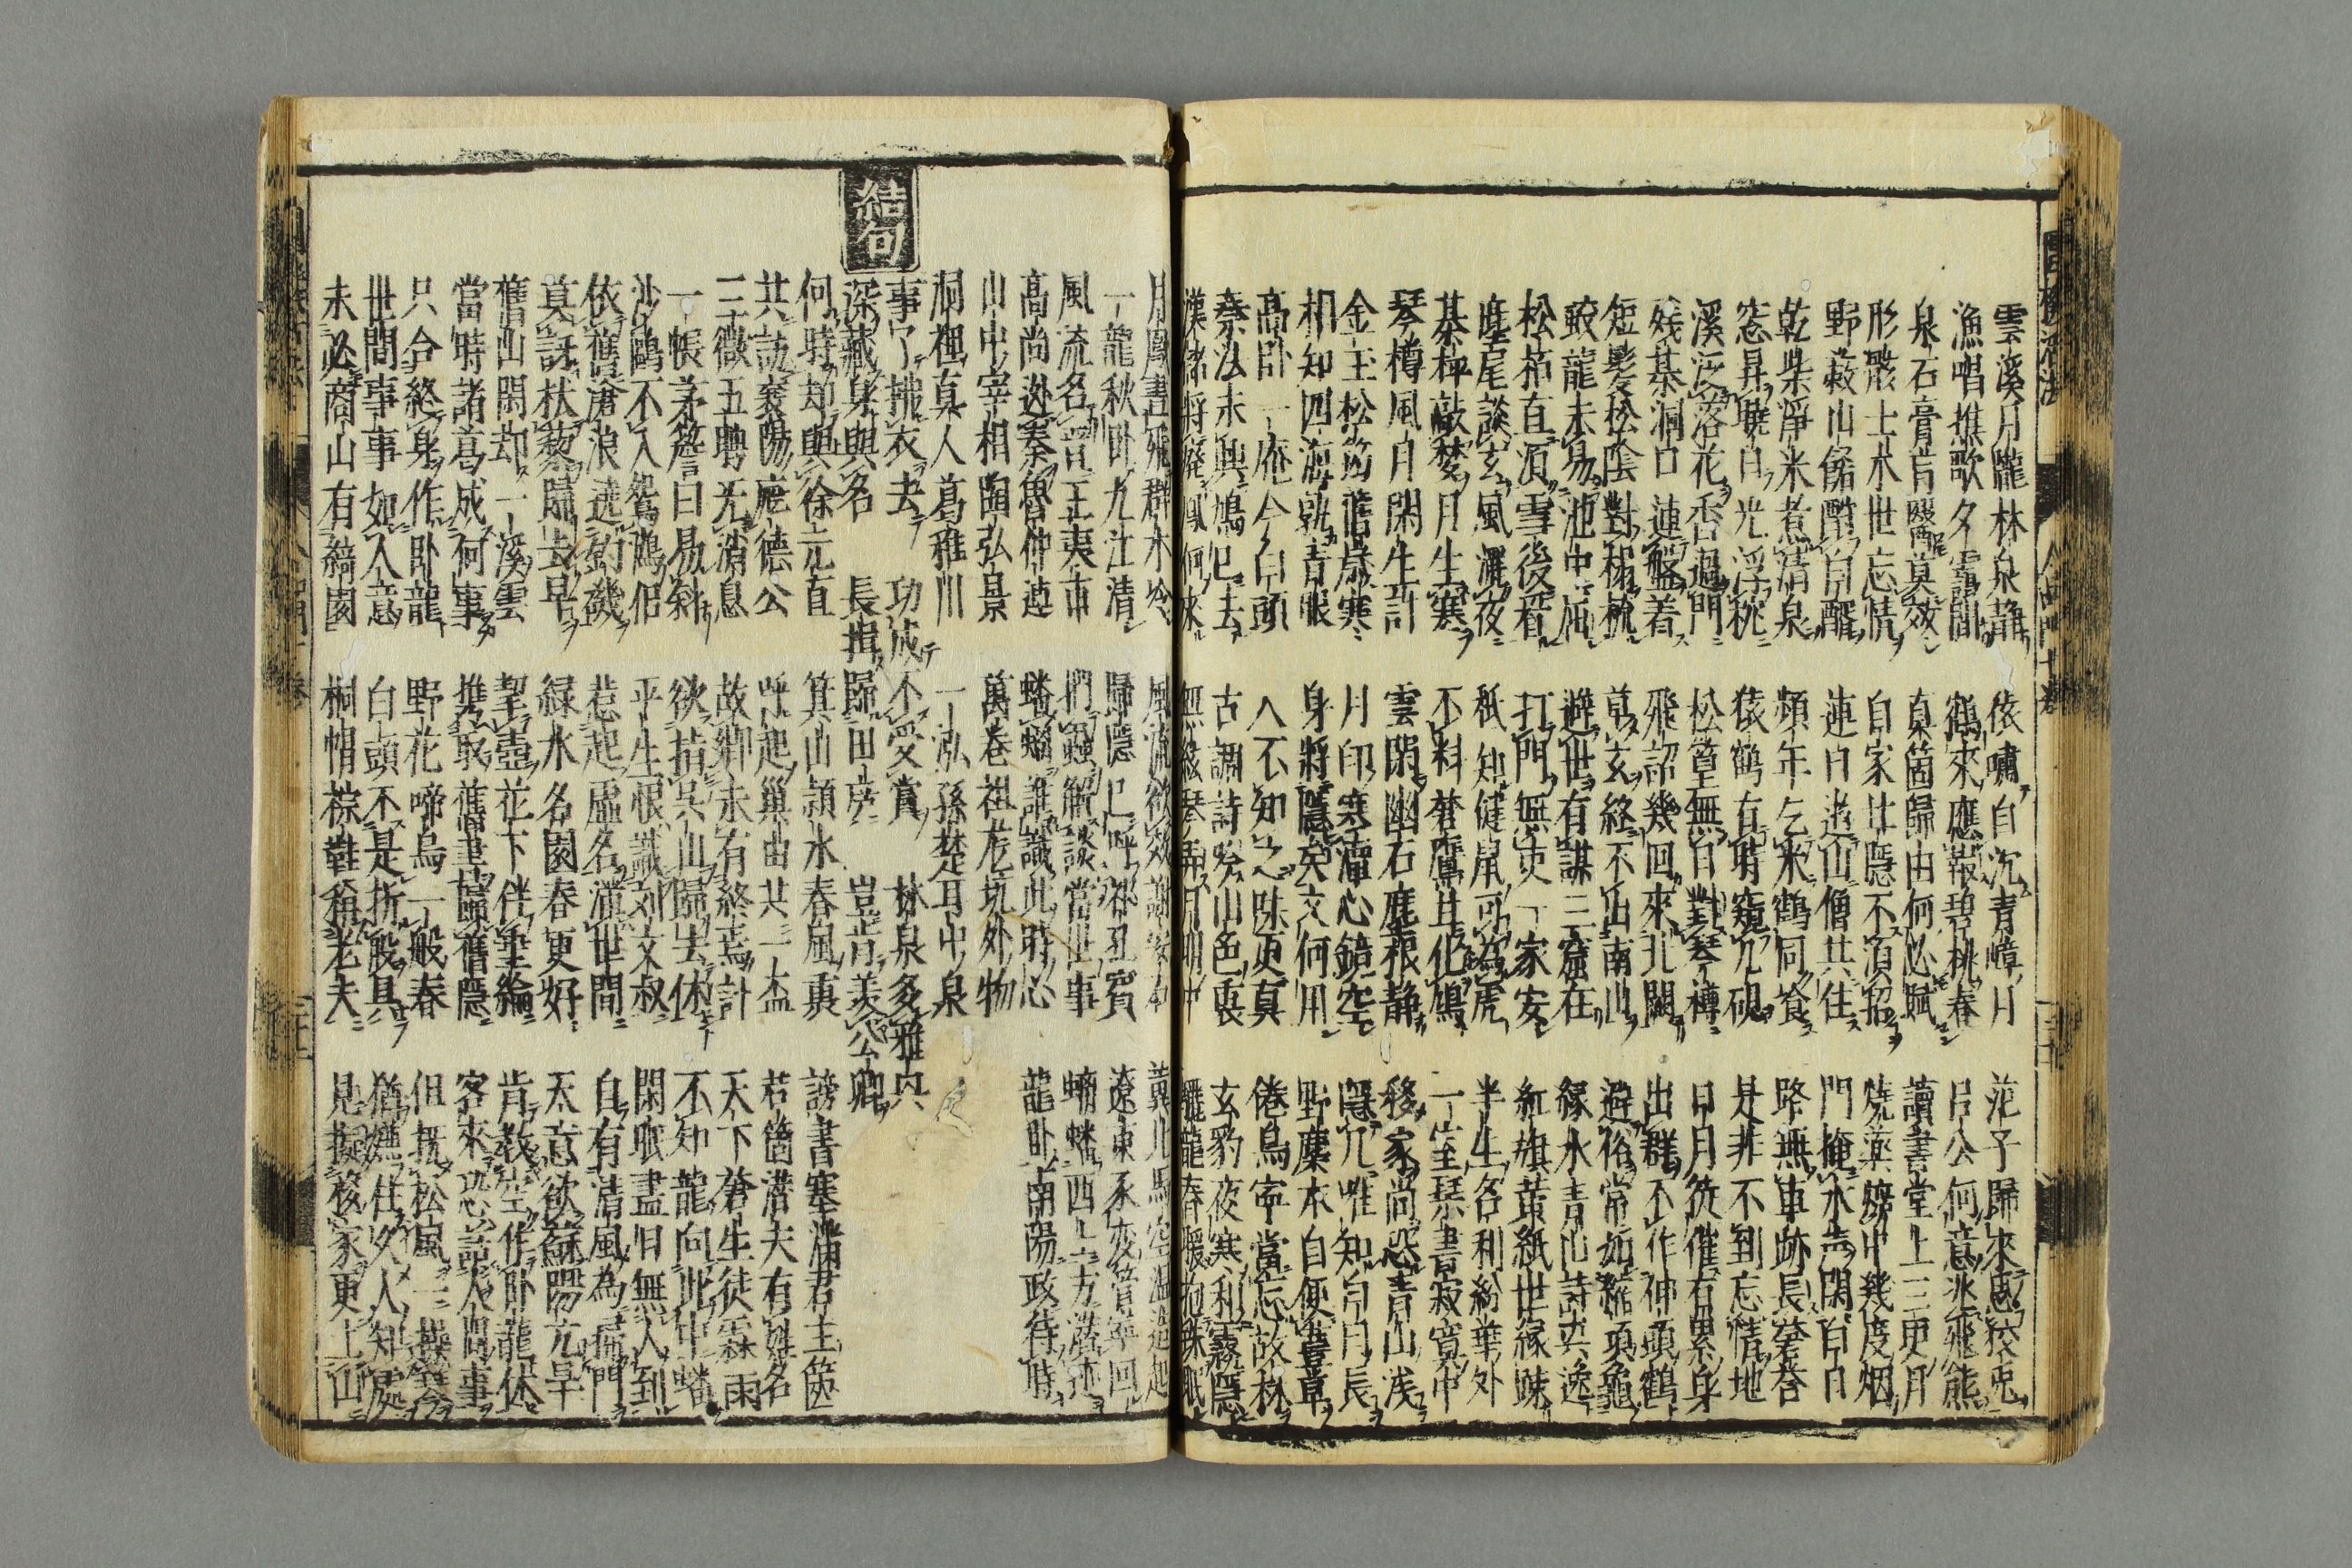 雲溪月隴林泉靜 猿嘯自沉青嶂月 范子歸來思狡兎
漁唱樵歌夕靄間 鶴來應報碧桃春 呂公何意兆飛熊
泉石膏肓醫莫效 稟箇歸由何必賦 讀書堂上三更月
形骸土木世忘情 自家仕隱不須招 燒藥爐中幾度烟
野蔌山餚酣自醒 連日遊山僧共住 門掩水聲閑白日
乾柴淨米煮清泉 頻年乞米鶴同飡 路無車跡長蒼苔
窓昇曉日光浮桃 猿鶴有時窺几硯 是非不到忘情地
溪泛落花香過門 松篁無日對琴樽 日月從催有累身
殘棊洞口連盤着 飛詔幾回來北闕 出群不作伸頭鶴
短髮松陰對梯梳 草玄終不出南山 避俗常如縮項龜
蛟龍未易池中伍 避世有謀三窟在 緑水青山詩共逸
松茆直須雪後看 打門無吏一家安 紅旗黃紙世緣疎
麈尾談玄風灑夜 秖知健鼠可為虎 半生名利紛華外
棊枰敲婪月生寒 不料蒼鷹且化鳩 一室琴書寂寞中
琴樽風月閑生計 雲閑幽石塵根靜 移家尚恐青山浅
金玉松筠舊歲寒 月印寒潭心鏡空 隱几唯知白日長
相知四海孰青眼 身將隱矣文何用 野麋本自便豊草
高臥一庵今白頭 人不知之味更真 倦鳥寧當忘故林
秦法未興鳩已去 古調詩吟山色裏 玄豹夜寒和霧隱
漢緒將廢鳳何來 無絃琴弄月明中 驪龍春暖抱珠眠
月 風流欲效謝安石
一龍秋臥九江清 歸隱已呼郗孔賓 遼東承変管寧回
風流名晉王夷甫 捫蝨觧談當世事
高尚逃秦魯仲連 蟠蟠誰識此時心 龍臥南陽政待時
山中宰相陶弘景 萬卷祖龙坑外物
洞裡真人葛稚川 一泓孫楚耳中泉
事了拂衣去 功成不受賞 林泉多雅興
結句
深藏身與名 長揖歸田廬 豈肯羨公卿
何時却與徐元直 箕山頴水春風裏 謗書塞滿君王篋
共訪襄陽龐德公 呼起巢由共一盃 若箇潜夫有姓名
三徵五聘无消息 故郷未有終焉計 天下蒼生徒霖雨
一帳茅簷日易斜 欲指吳山歸去休 不知龍向此中蟠
沙鷗不入鴛鴻侶 平生恨識刘文叔 閑眠盡日無人到
依舊滄浪遶釣磯 惹起虛名滿世間 自有清風為掃門
莫訝杖藜歸去早 緑水名園春更好 天意欲蘇陽亢旱
舊山閑却一溪雲 挈壺花下伴垂綸 肯教空作臥龍休
當時諸葛成何事 携取舊書歸舊隱 客來恐話人間事
只合終身作臥龍 野花啼鳥一般春 但抚松風一操琴
世間事事如人意 白頭不是折般具 猶嫌住処人知處
未必商山有綺園 桐帽棕鞋稱老夫 見擬移家更上山